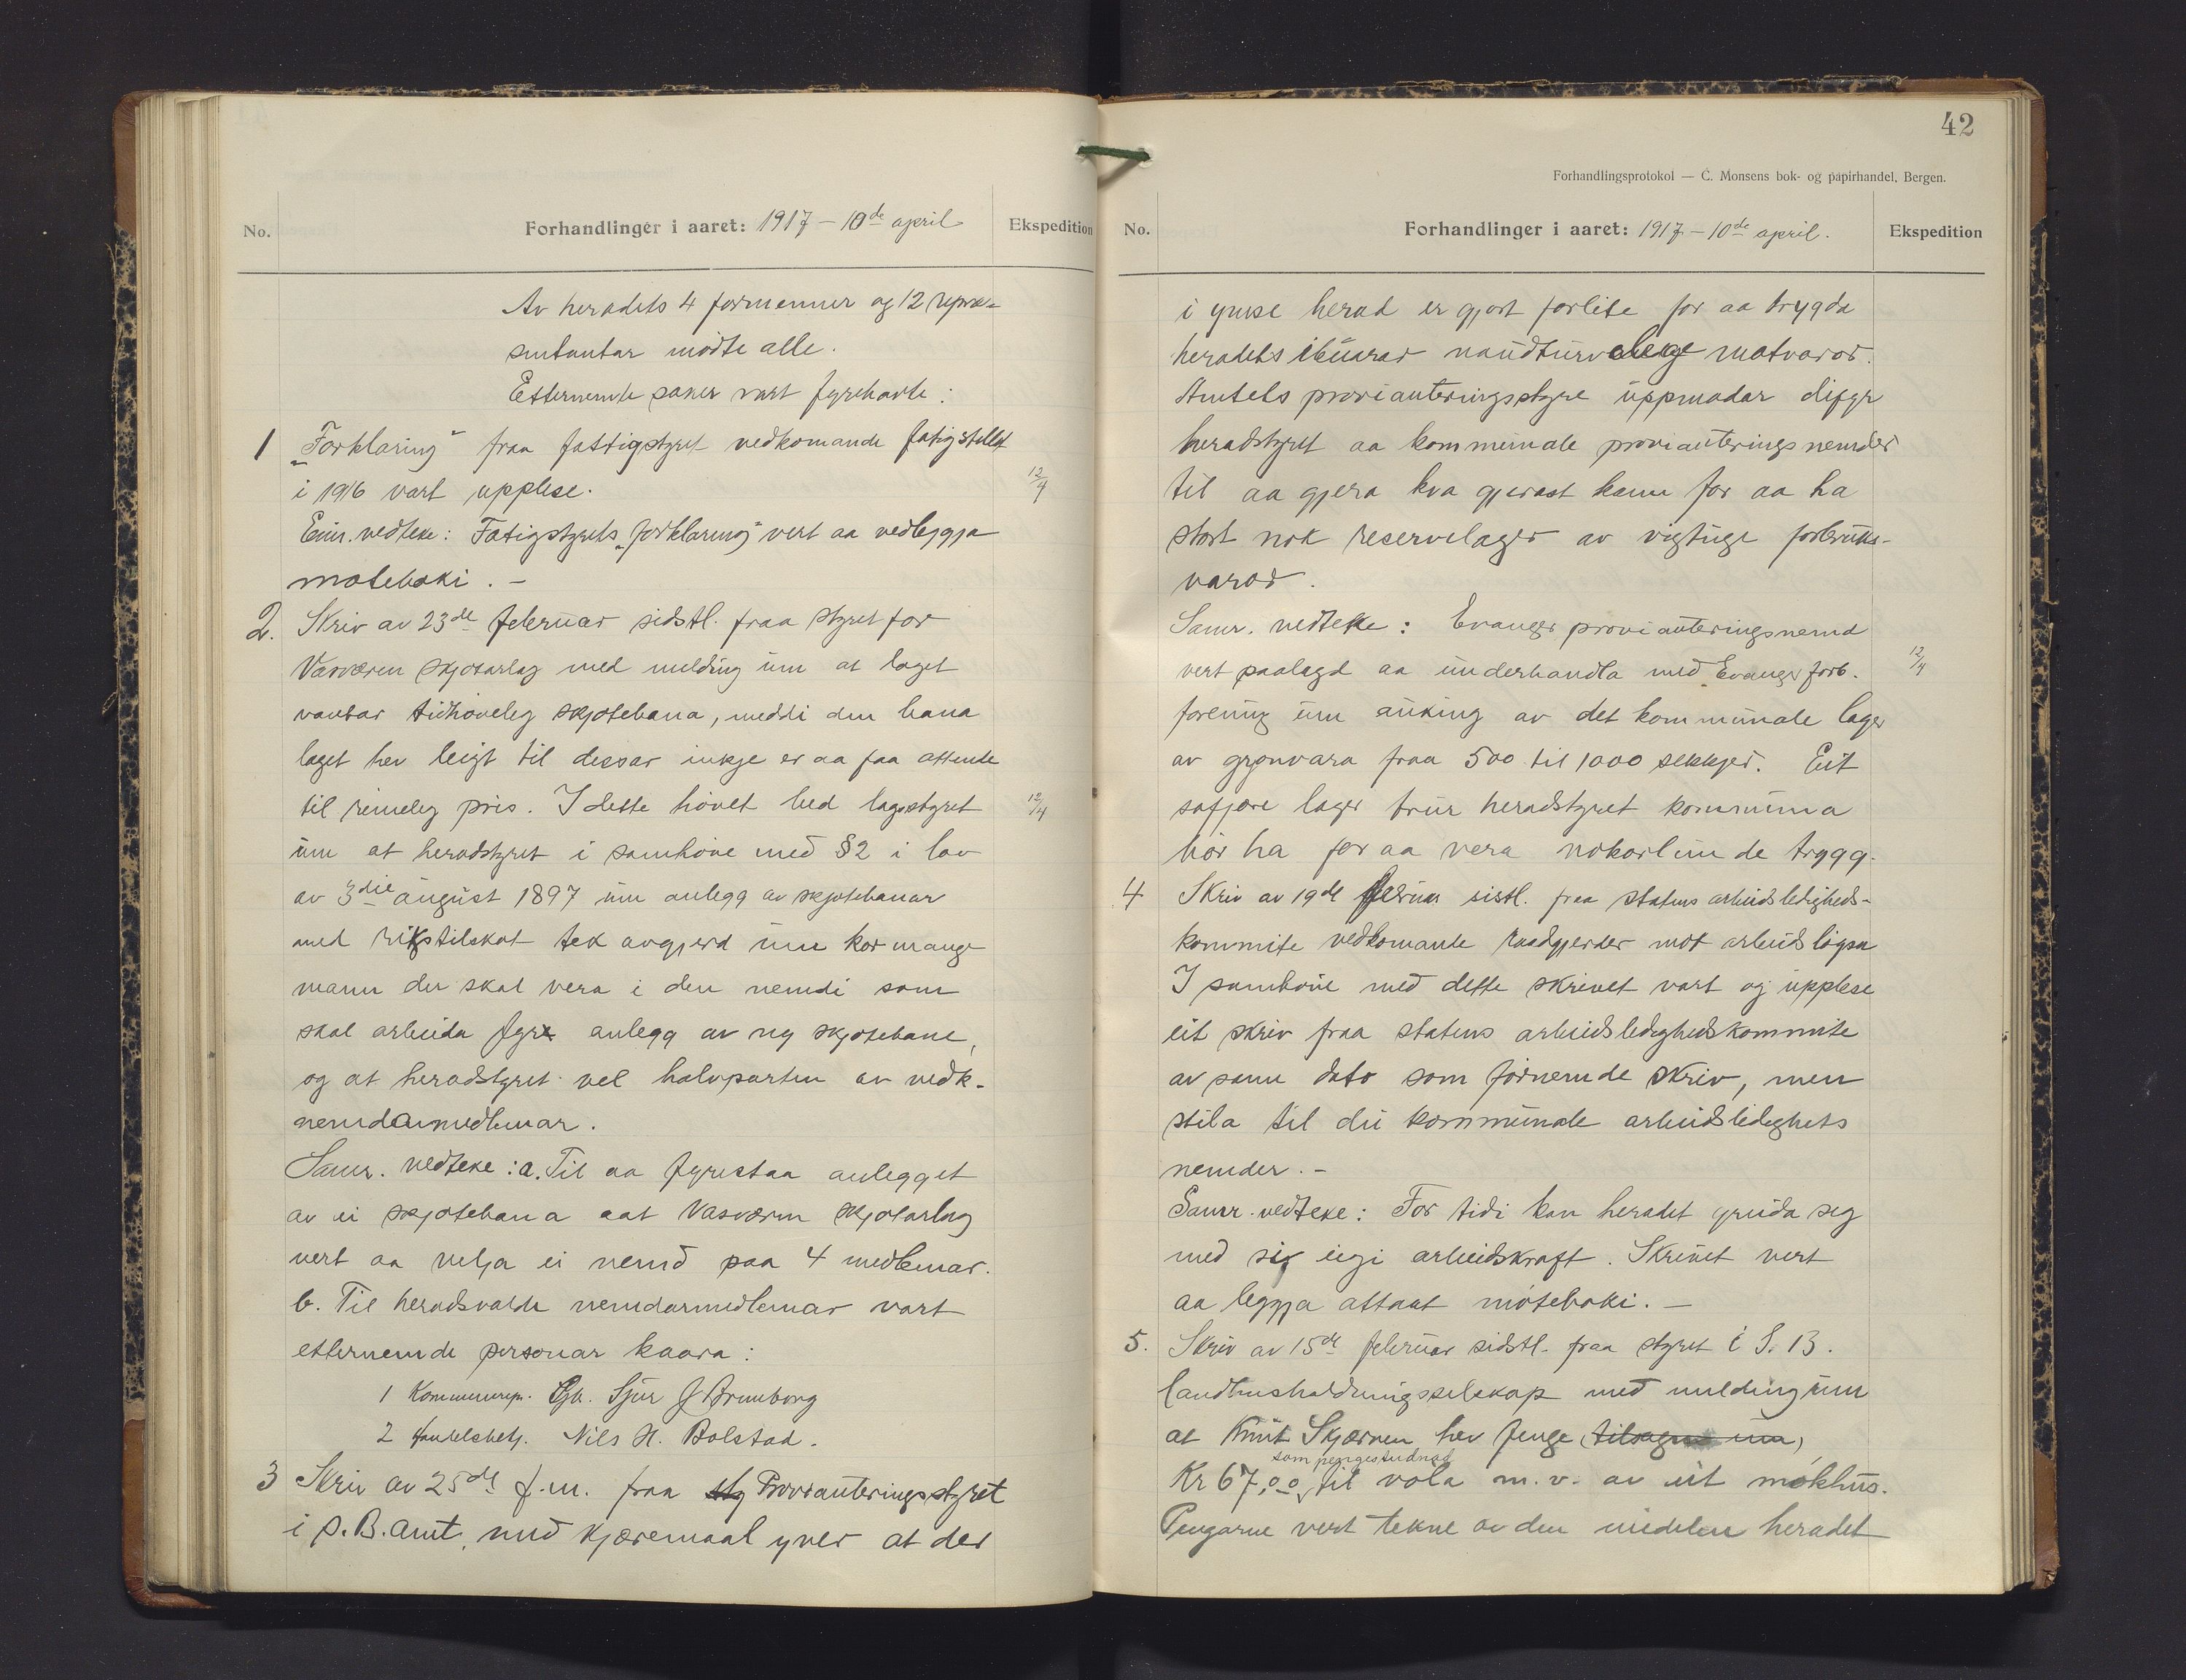 No.
Forhandlinger i aaret: 1917 – 10de april
Ekspedition
Av heradets 4 formenner og 12 repræ-
sentantar møtte alle.
Etternemnde saker vart fyrehavte:
1 „Forklaring" fraa fattigstyret vedkomande fatigstellet
i 1916 vart upplese.
12/4
Einr. vedteke: Fatigstyrets „forklaring" vert aa vedleggja
møteboki. –
2. Skriv av 23de februar sidstl. fraa styret for
Vasværen skjotarlag med melding um at laget
vantar tidhøveleg skjotebana, med di den bana
laget hev leigt til dessar inkje er aa faa attende
til rimeleg pris. I dette høvet bed lagsstyret
12/4
um at heradstyret i samhøve med §2 i lov
av 3die august 1897 um anlegg av skjotebanar
med rikstilskot tek avgjerd um kor mange
mann der skal vera i den nemdi som
skal arbeida fyre anlegg av ny skjotebane,
og at heradstyret vel halvparten av vedk.
nemdarmedlemar.
Samr. vedteke: a. Til aa fyrestaa anlegget
av ei skjotebana aat Vasværen skjotarlag
vert aa velja ei nemd paa 4 medlemar.
b. Til heradsvalde nemdarmedlemar vart
etternemde personar kaara:
1 Kommunerep. Gb. Sjur J Brunborg
2 Handelsbetj. Nils H. Bolstad.
3 Skriv av 25de f.m. fraa sty Provianteringsstyret
i S.B. amt, med kjæremaal yver at der
42
Forhandlingsprotokol — C. Monsens bok- og papirhandel, Bergen.
No.
Forhandlinger i aaret: 1917 – 10de april.
Ekspedition
i ymse herad er gjort forlite for aa trygda
heradets ibuarar naudturvelege matvaror.
Amtets provianteringsstyre uppmodar difyr
heradstyret aa kommunale provianteringsnemder
til aa gjera kva gjerast kann for aa ha
stort nok reservelager av vigtuge forbruks-
varor.
Samr. vedteke: Evanger provianteringsnemd
vert paalagd aa underhandla med Evanger forb.
12/4
forening um auking av det kommunale lager
av grønvara fraa 500 til 1000 sekkjer. Eit
sofjore lager trur heradstyret kommuna
bør ha for aa vera nokorlunde trygg.
4 Skriv av 19de februar sistl. fraa statens arbeidsledigheds-
kommite vedkomande raadgjerder mot arbeidsløysa
I samhøve med dette skrivet vart og upplese
eit skriv fraa statens arbeidsledighedskommite
av same dato som førnemde skriv, men
stila til dei kommunale arbeidsledighets
nemder. –
Samr. vedteke: For tidi kan heradet greida seg
med si eigi arbeidskraft. Skrivet vert
aa leggja attaat møteboki. –
5. Skriv av 15de februar sidstl. fraa styret i S. B.
landhusholdningsselskap med melding um
at Knut Skjerven hev fenge (tilsagn um)
som pengestudnad
Kr 67,00 til vøla m. v. av eit møkhus.
Pengarne vert tekne av den medelen heradet